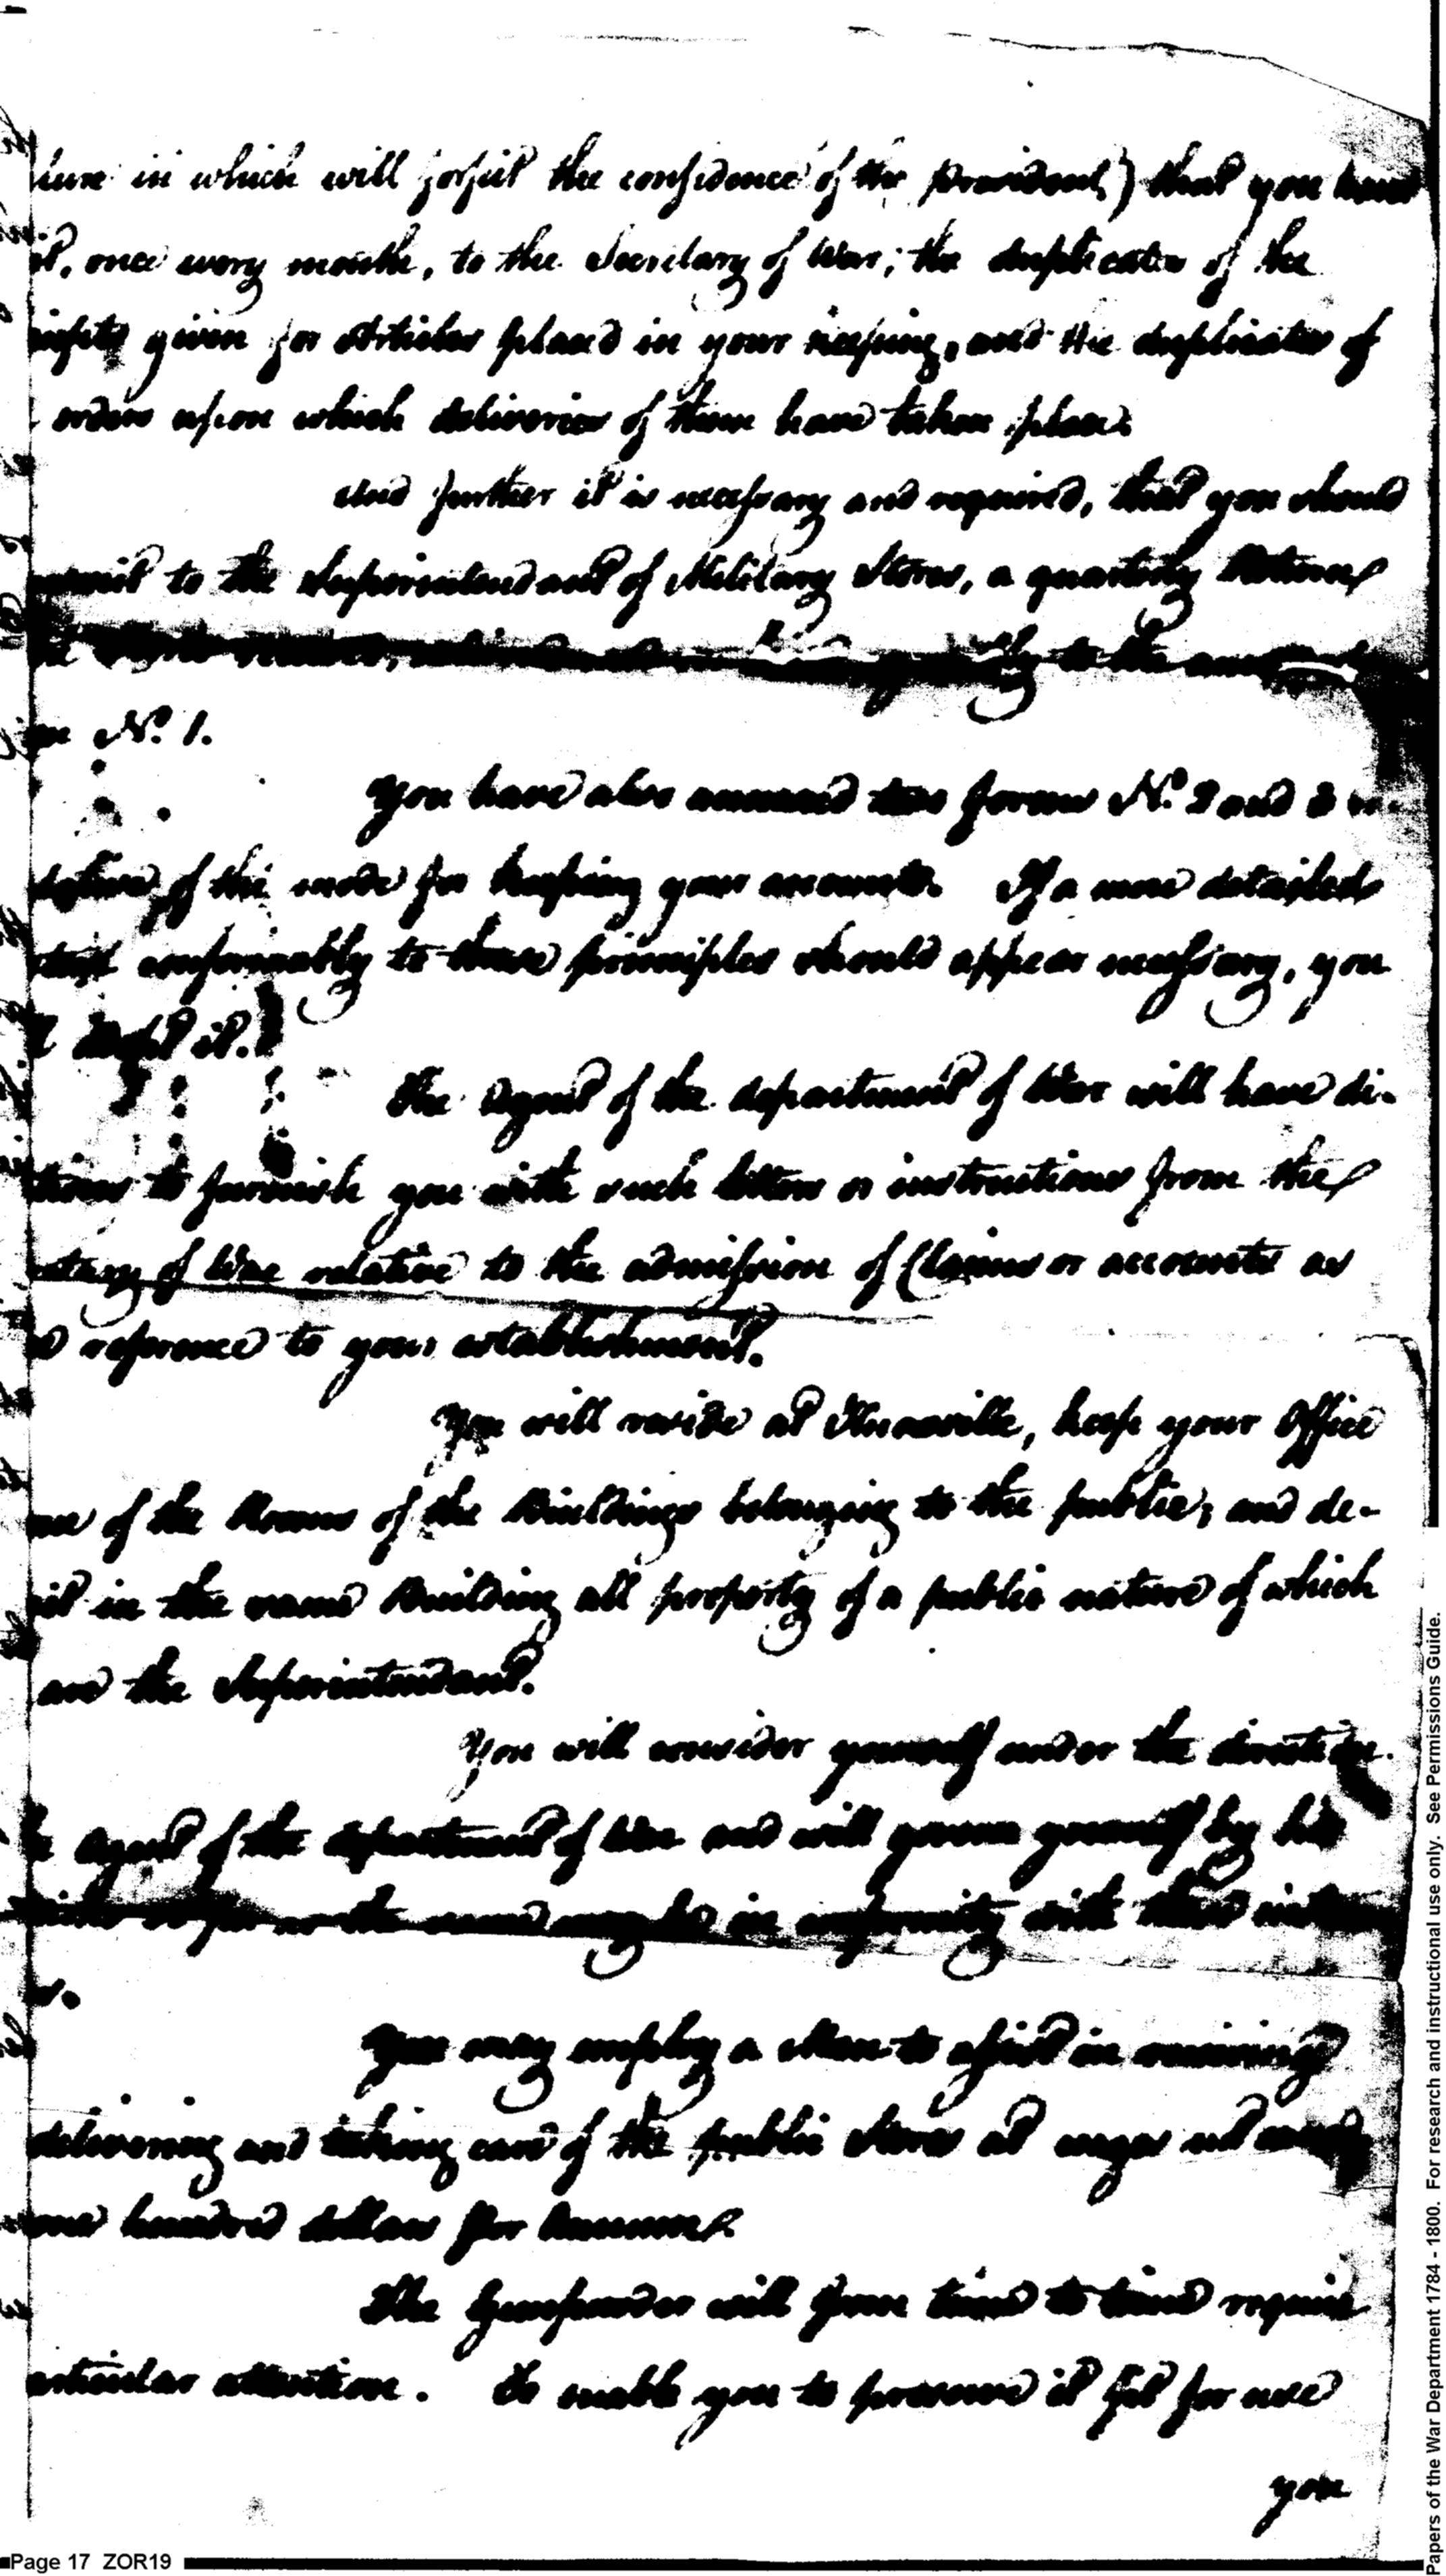 lure in which will forfeit the confidence of the President) that you
it, once every month, to the Secretary of War; the duplicates of the
given for Articles placed in your keeping, and the duplicates of
orders upon which deliveries of them have taken place.
And further it is necessary and required, that you should
to the Superintendant of Military Stores, a quarterly Return
to the
N.o 1.
You have also annexed two forms N.o 2 and 3
of the mode for keeping your accounts. If a more detailed
conformably to these principles should appear necessary, you
it.
The Agent of the department of War will have di-
to furnish you with such letters or instructions from the
of War relative to the admission of Claims or accounts as
reference to your establishment.
You will reside at Knoxville, keep your Office
of the Rooms of the Buildings belonging to the public; and de-
it in the same Building all property of a public nature of which
are the Superintendant.
You will consider yourself under the direction
Agent of the department of War and will govern yourself by his
so far as the same may be in conformity with these
You may employ a Man to assist in receiving
delivering and taking care of the public stores at wages not
one hundred dollars per Annum.
The Gunpowder will from time to time require
articular attention. To enable you to preserve it fit for use
you
Page 17 ZOR19
Papers of the War Department 1784 - 1800. For research and instructional use only. See Permissions Guide.